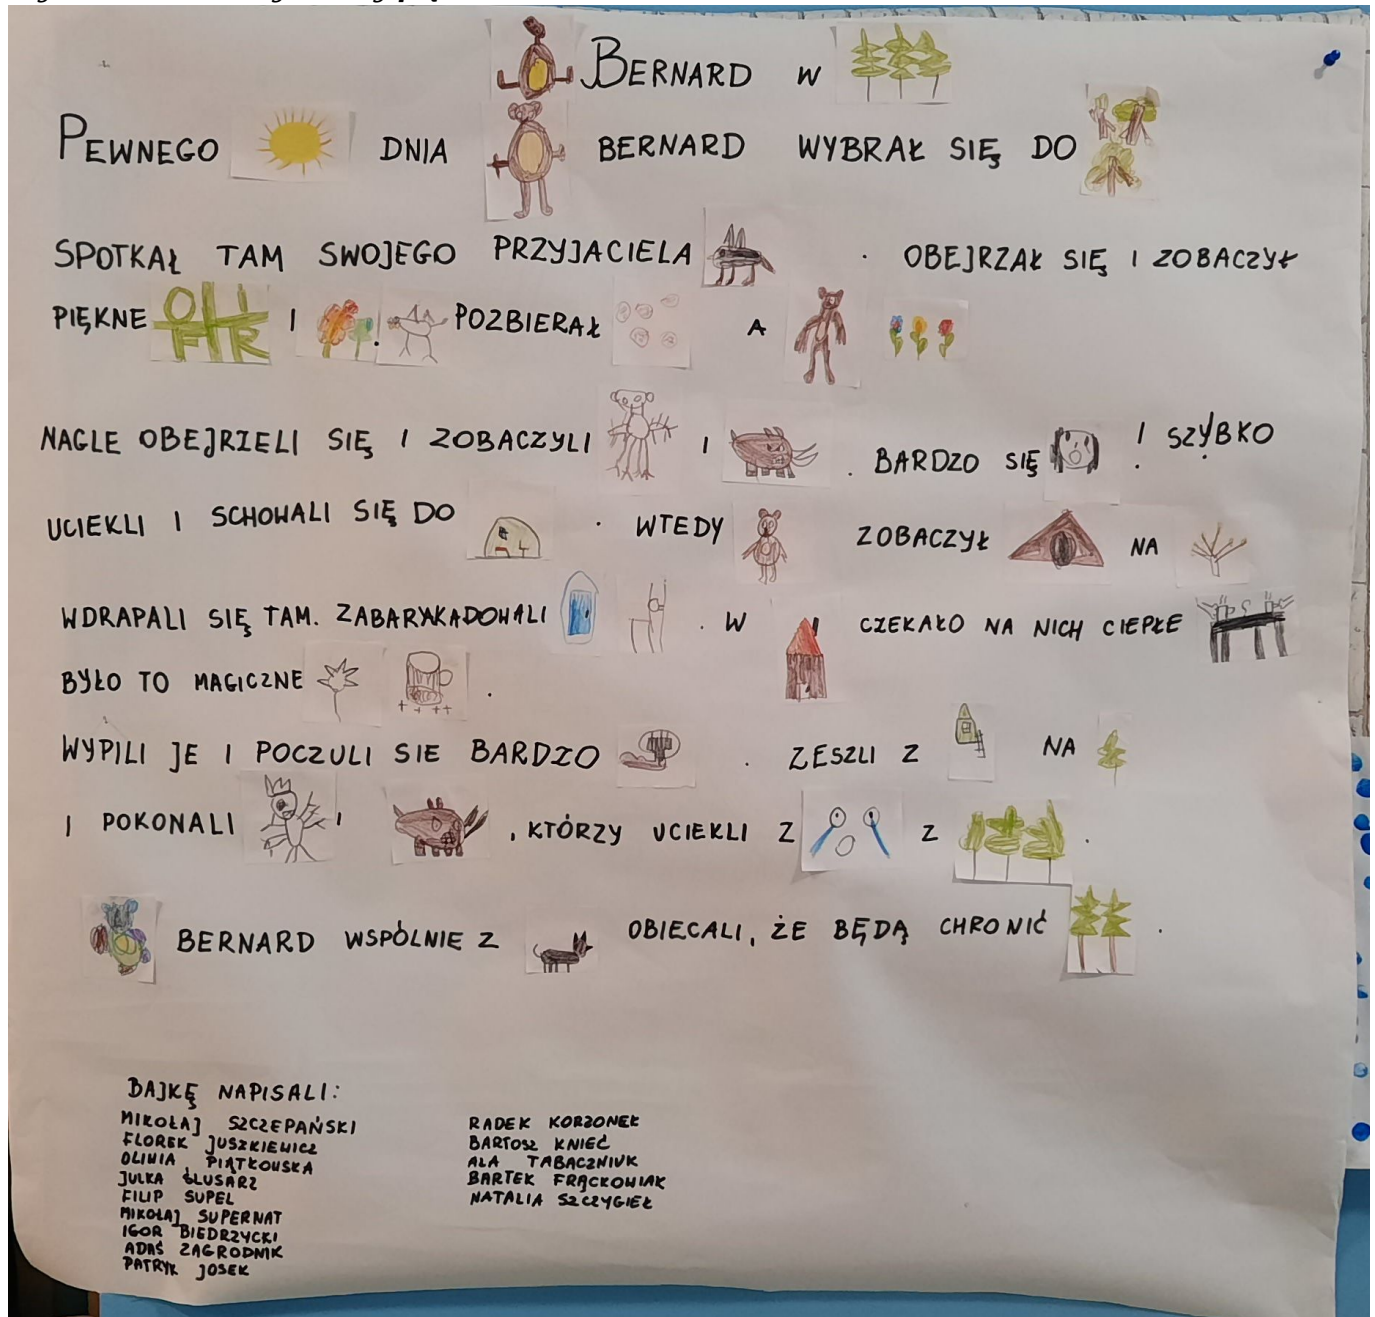 BERNARD W
PEWNEGO DNIA BERNARD WYBRAŁ SIĘ DO
SPOTKAŁ TAM SWOJEGO PRZYJACIELA . OBEJRZAŁ SIĘ I ZOBACZYŁ
PIĘKNE I . POZBIERAŁ A
NAGLE OBEJRIELI SIĘ I ZOBACZYLI I . BARDZO SIĘ ! SZYBKO
UCIEKLI I SCHOWALI SIĘ DO . WTEDY ZOBACZYŁ NA
WDRAPALI SIĘ TAM. ZABARYKADOWALI . W CZEKAŁO NA NICH CIEPŁE
BYŁO TO MAGICZNE .
WYPILI JE I POCZULI SIE BARDZO . ZESZLI Z NA
I POKONALI I , KTÓRZY UCIEKLI Z Z .
BERNARD WSPÓLNIE Z OBIECALI, ŻE BĘDĄ CHRONIĆ .
BAJKĘ NAPISALI:
MIKOŁAJ SZCZEPAŃSKI
FLOREK JUSZKIEWICZ
OLIWIA PIĄTKOWSKA
JULKA ŚLUSARZ
FILIP SUPEL
MIKOŁAJ SUPERNAT
IGOR BIEDRZYCKI
ADAŚ ZAGRODNIK
PATRYK JOSEK
RADEK KORZONEK
BARTOSZ KNIEĆ
ALA TABACZNIUK
BARTEK FRĄCKOWIAK
NATALIA SZCZYGIEŁ